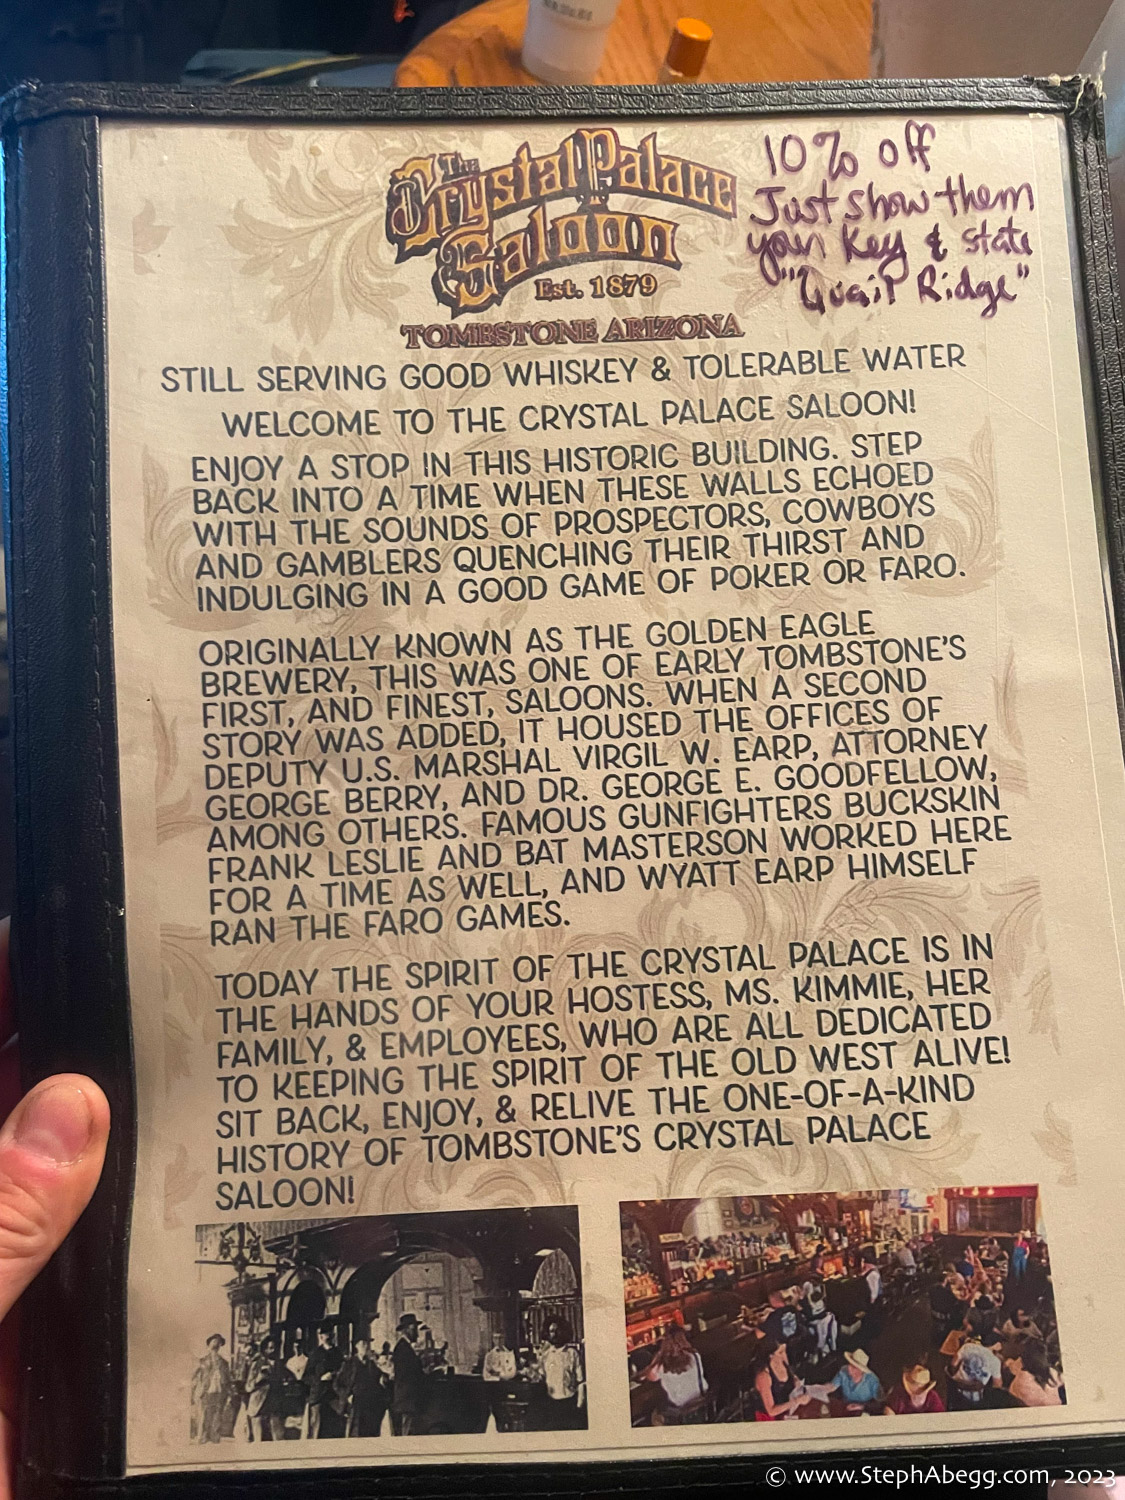 The
Crystal Palace
Saloon
Est. 1879
TOMBSTONE ARIZONA
10% off
Just show them
your key & state
"Quail Ridge"
STILL SERVING GOOD WHISKEY & TOLERABLE WATER
WELCOME TO THE CRYSTAL PALACE SALOON!
ENJOY A STOP IN THIS HISTORIC BUILDING. STEP
BACK INTO A TIME WHEN THESE WALLS ECHOED
WITH THE SOUNDS OF PROSPECTORS, COWBOYS
AND GAMBLERS QUENCHING THEIR THIRST AND
INDULGING IN A GOOD GAME OF POKER OR FARO.
ORIGINALLY KNOWN AS THE GOLDEN EAGLE
BREWERY, THIS WAS ONE OF EARLY TOMBSTONE'S
FIRST, AND FINEST, SALOONS. WHEN A SECOND
STORY WAS ADDED, IT HOUSED THE OFFICES OF
DEPUTY U.S. MARSHAL VIRGIL W. EARP, ATTORNEY
GEORGE BERRY, AND DR. GEORGE E. GOODFELLOW,
AMONG OTHERS. FAMOUS GUNFIGHTERS BUCKSKIN
FRANK LESLIE AND BAT MASTERSON WORKED HERE
FOR A TIME AS WELL, AND WYATT EARP HIMSELF
RAN THE FARO GAMES.
TODAY THE SPIRIT OF THE CRYSTAL PALACE IS IN
THE HANDS OF YOUR HOSTESS, MS. KIMMIE, HER
FAMILY, & EMPLOYEES, WHO ARE ALL DEDICATED
TO KEEPING THE SPIRIT OF THE OLD WEST ALIVE!
SIT BACK, ENJOY, & RELIVE THE ONE-OF-A-KIND
HISTORY OF TOMBSTONE'S CRYSTAL PALACE
SALOON!
© www.StephAbegg.com, 2023